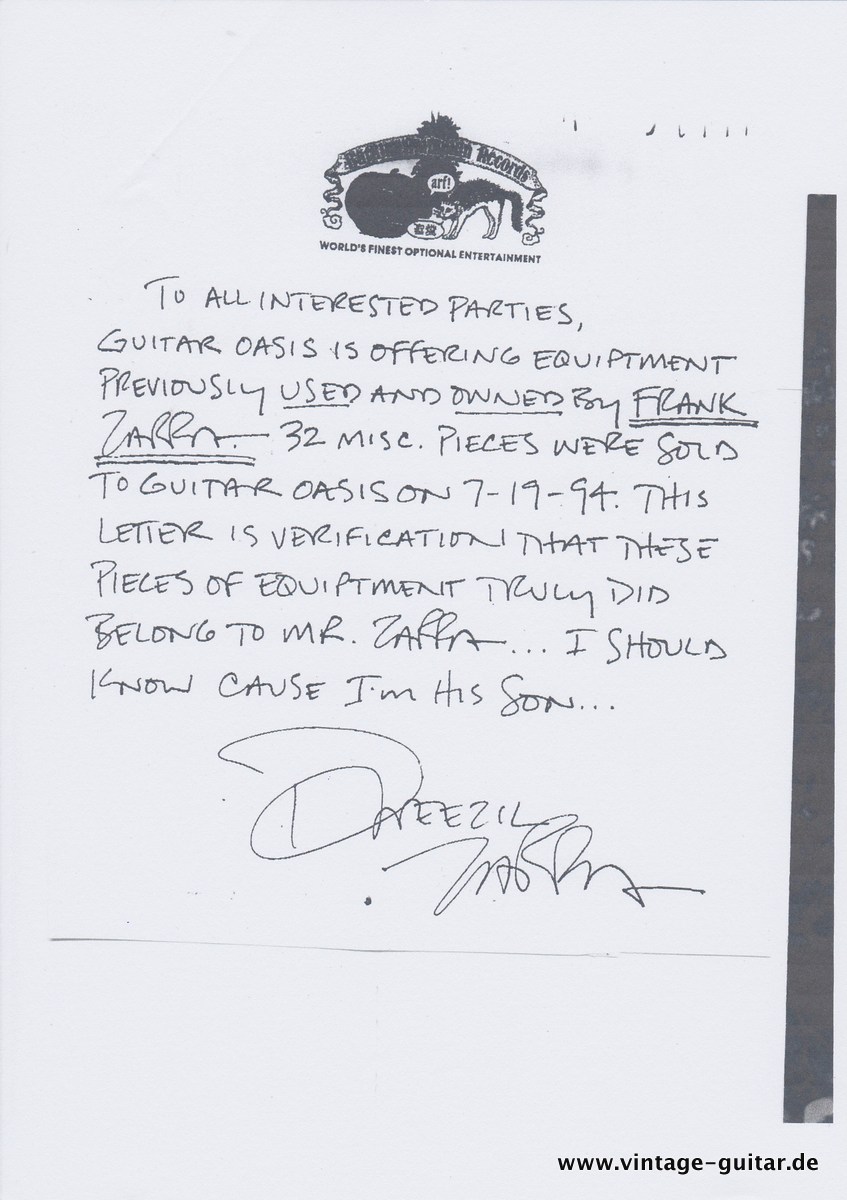 Records
arf!
WORLD'S FINEST OPTIONAL ENTERTAINMENT
TO ALL INTERESTED PARTIES,
GUITAR OASIS IS OFFERING EQUIPTMENT
PREVIOUSLY USED AND OWNED By FRANK
ZAPPA. 32 MISC. PIECES WERE SOLD
TO GUITAR OASIS ON 7-19-94. THIS
LETTER IS VERIFICATION THAT THESE
PIECES OF EQUIPTMENT TRULY DID
BELONG TO MR. ZAPPA... I SHOULD
KNOW CAUSE I'm HIS SON...
DWEEZIL
ZAPPA
www.vintage-guitar.de